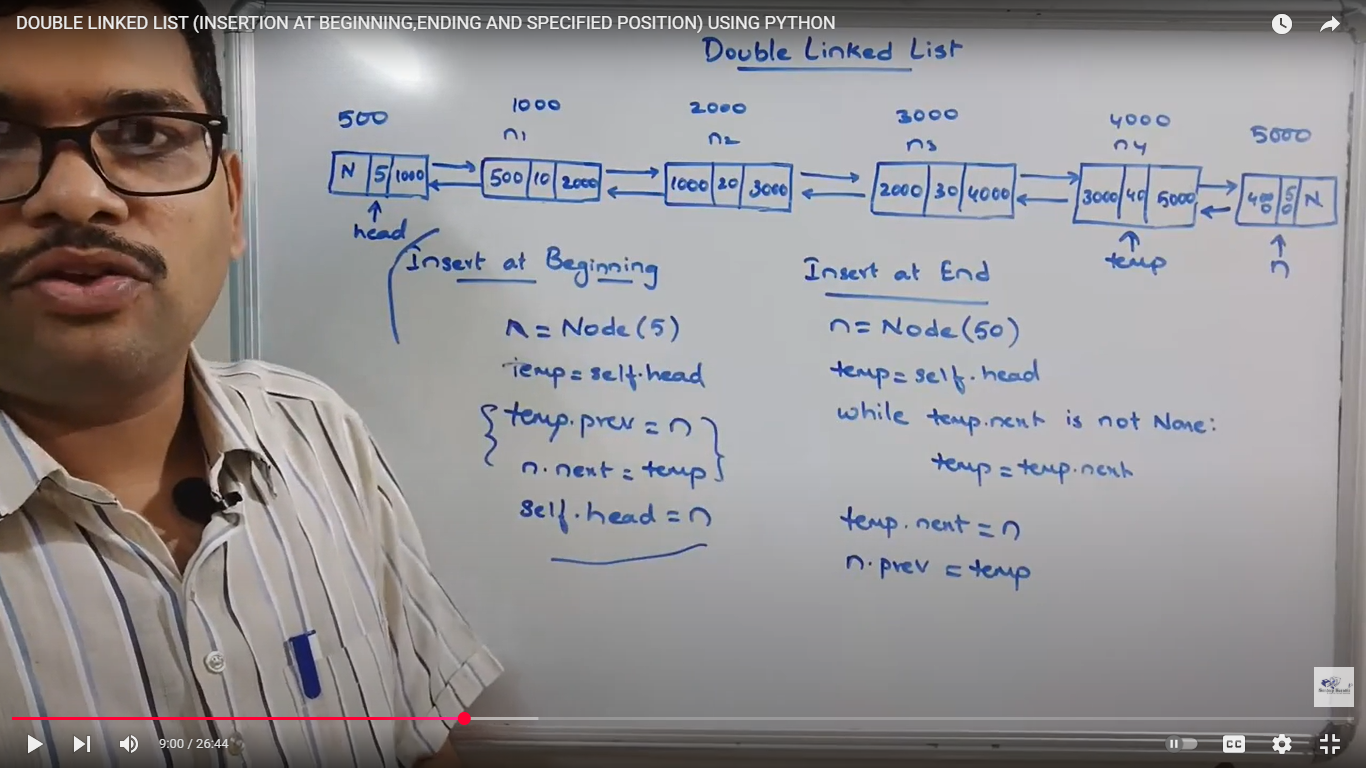 DOUBLE LINKED LIST (INSERTION AT BEGINNING,ENDING AND SPECIFIED POSITION) USING PYTHON
Double Linked List
500 1000 2000 3000 4000 5000
n1 n2 n3 n4
N 5 1000 500 10 2000 1000 20 3000 2000 30 4000 3000 40 5000 400 0 5 0 N
head temp n
Insert at Beginning
n = Node(5)
temp = self.head
temp.prev = n
n.next = temp
self.head = n
Insert at End
n = Node(50)
temp = self.head
while temp.next is not None:
temp = temp.next
temp.next = n
n.prev = temp
9:00 / 26:44
CC